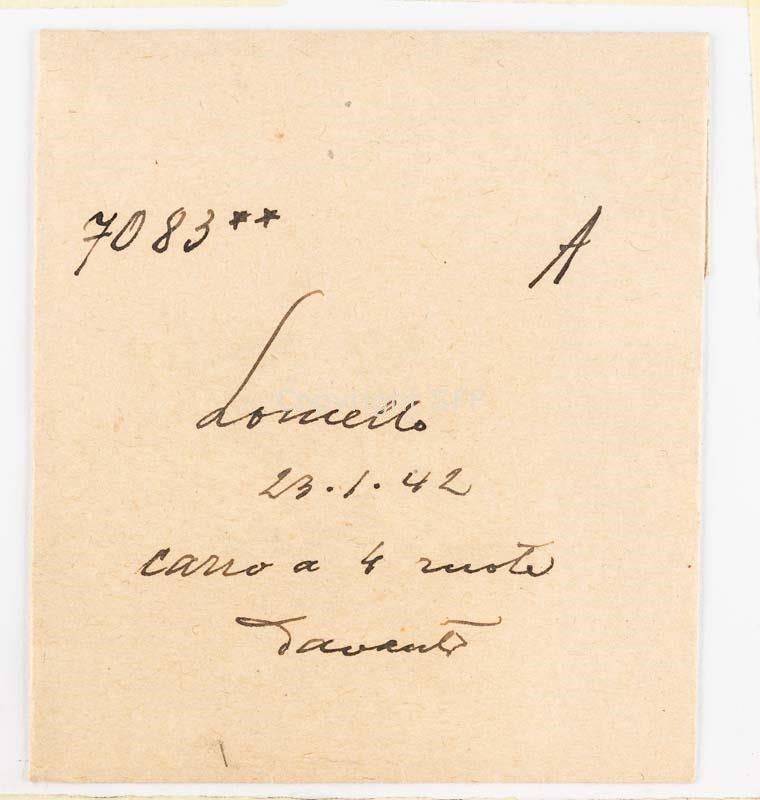 7083** A
Lomello
23.1.42
carro a 4 ruote
davanti